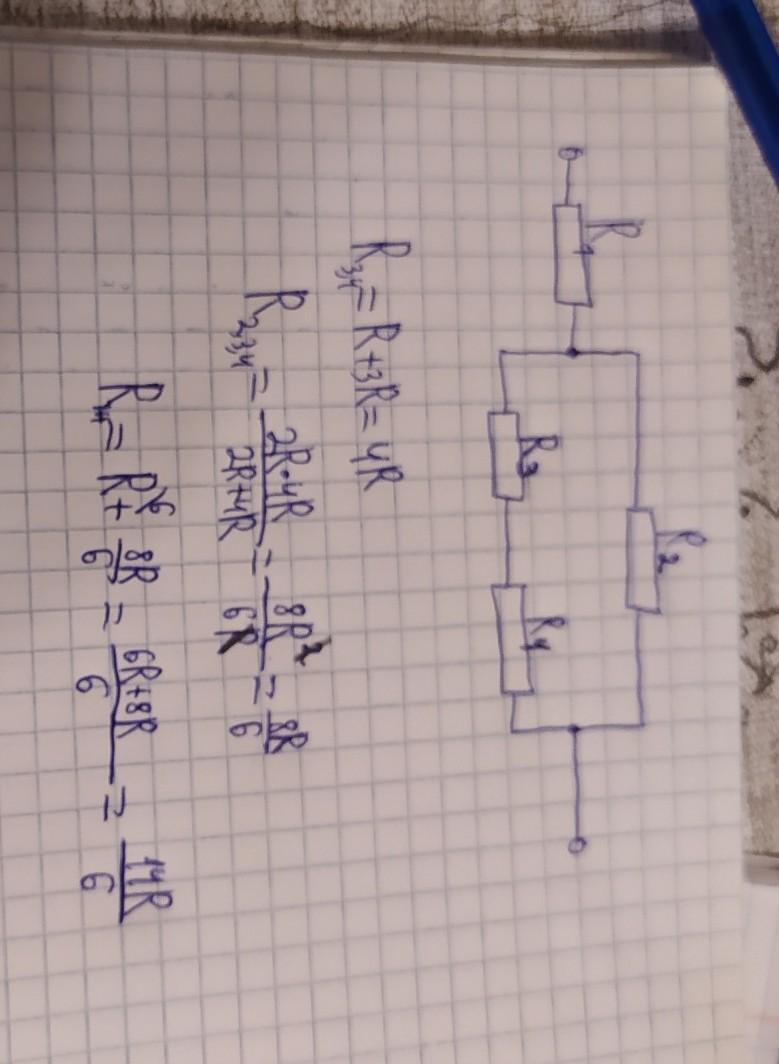 R₁
R₂
R₃ R₄
R₃,₄ = R+3R = 4R
R₂,₃,₄ = 2R·4R / 2R+4R = 8R² / 6R = 8R / 6
= R⁶ + 8R / 6 = 6R+8R / 6 = 14R / 6